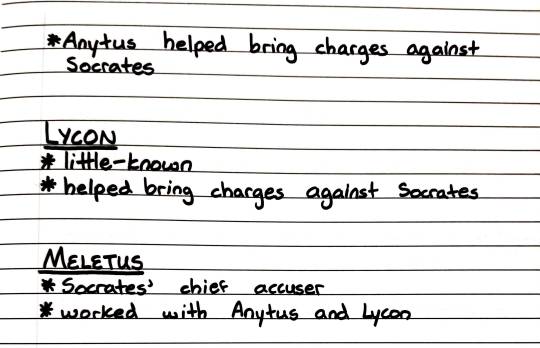 *Anytus helped bring charges against
Socrates
LYCON
* little-known
* helped bring charges against Socrates
MELETUS
* Socrates' chief accuser
* worked with Anytus and Lycon